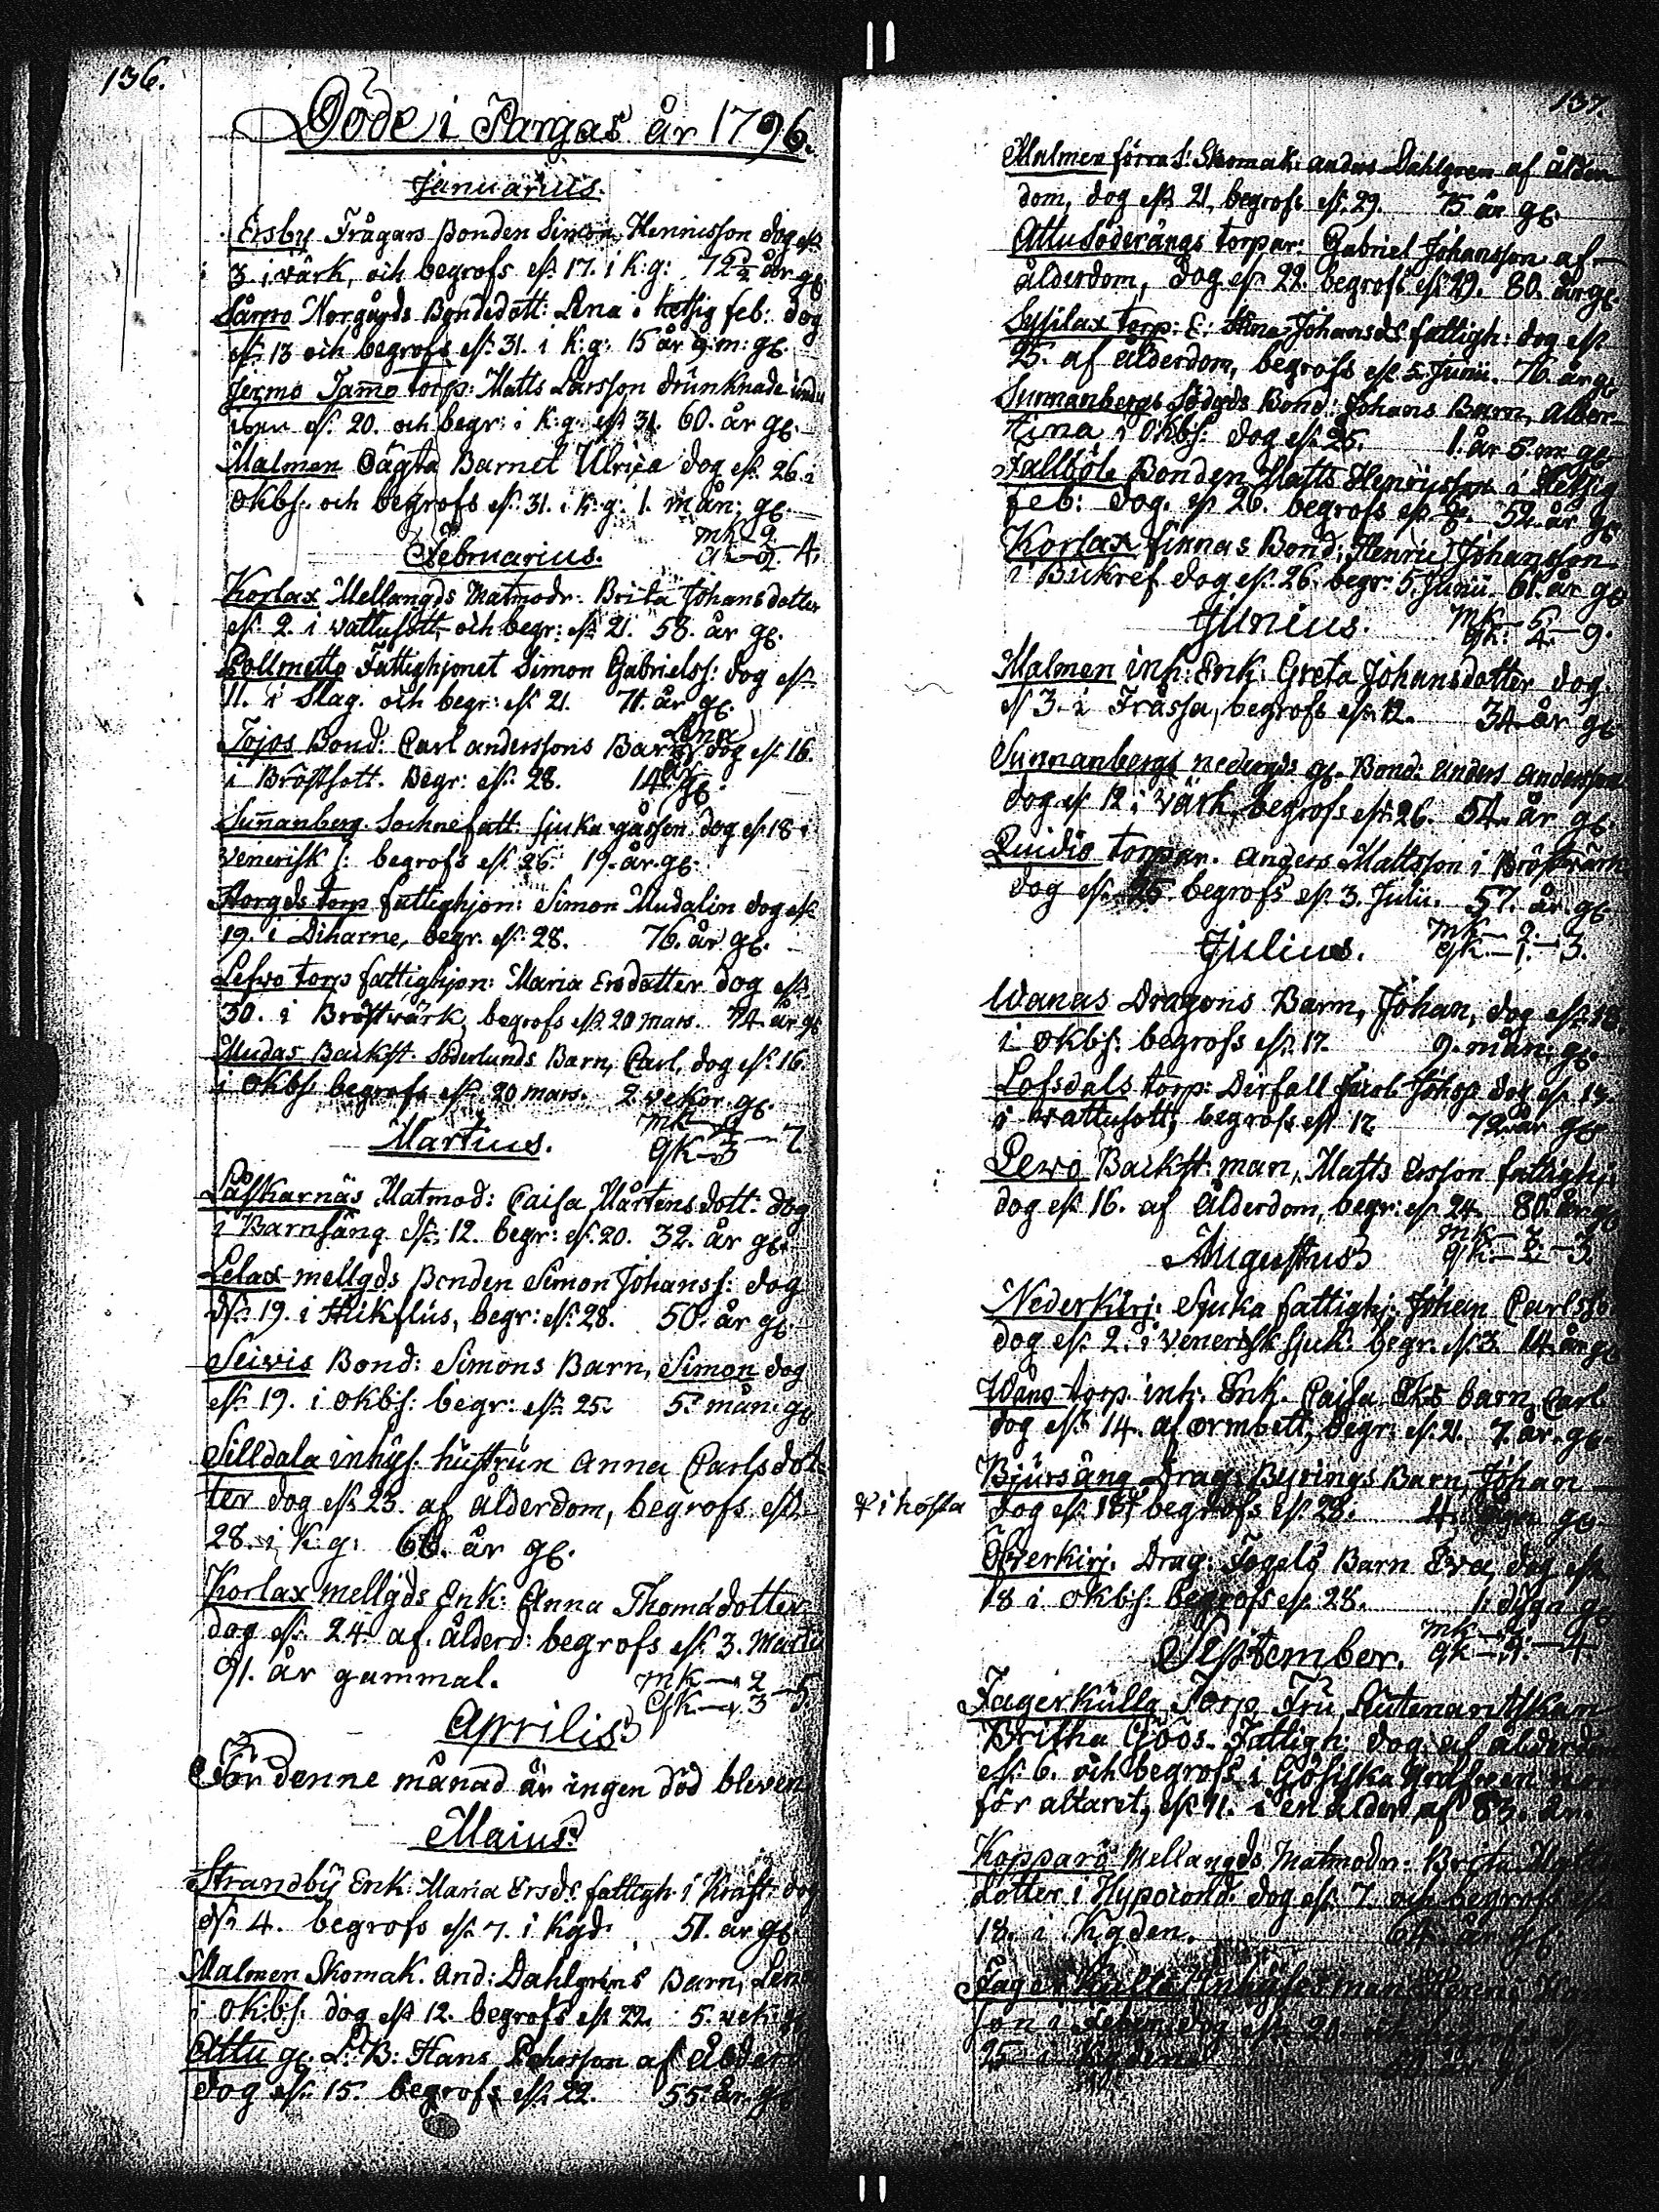 136.
Döde i Pargas år 1796.
Januarius.
Ersby Frågars Bonden Simon Henricsson dog ds:
3 i värk, och begrofs ds: 17. i k:g: 72½ år gl.
Sårmo Norgårds Bondedott: Lena i hetsig feb: dog
ds: 13 och begrofs ds: 31. i k:g: 15 år 9 m: gl.
Jermo Jamo torp: Matts Larsson drunknade under
isen ds: 20. och begr: i k:g: ds: 31. 60. år gl.
Malmen Oägta Barnet Ulrica dog ds: 26. i
okbs: och begrofs ds: 31. i k:g: 1. mån: gl.
mk 2
Februarius. 2 — 4.
Korlax Mellangds Matmodr: Brita Johansdotter
ds: 2. i vattusott, och begr: ds: 21. 58. år gl.
Fattighjonet Simon Gabrielss: dog ds:
11. i Slag. och begr: ds: 21. 71. år gl.
Lena
Tojos Bond: Carl anderssons Barn dog ds: 16.
i Bröstsott. Begr: ds: 28. 14 gl.
Sunnanberg Sochne fatt: sjuka gåssen dog ds: 18 i
Venerisk s: begrofs ds: 26. 19. år gl.
Storgds torp fattighjon: Simon Mudalin dog ds:
19. i Diharne, begr. ds: 28. 76. år gl.
Lefvo torp fattighjon: Maria Ersdotter dog ds:
30. i Bröstvärk, begrofs ds: 20 mars. 74. år gl
Mudas Backst. Söderlunds Barn, Carl, dog ds: 16.
i okbs: begrofs ds: 20 mars. 2 vekor. gl.
mk 4
Martius. qk 3 — 7
Låskarnäs Matmod: Caisa Mårtens dott: dog
i Barnsäng ds: 12. begr: ds: 20. 32. år gl.
Lelax mellgds Bonden Simon Johanss: dog
ds: 19. i begr: ds: 28. 50. år gl.
Seivis Bond: Simons Barn, Simon dog
ds: 19. i okbs: begr: ds: 25. 5. mån: gl
Silldala inhys. hustrun Anna Carlsdot-
ter dog ds: 23. af ålderdom, begrofs ds:
28. i k.g: år gl.
Korlax mellgds Enk: Anna Thomadotter
dog ds: 24. af ålderd: begrofs ds: 3.
91. år gammal. mk — 2
qk — 3 — 5.
Aprilis
För denne månad är ingen död bleven
Maius.
Strandby Enk: Maria Ersds: fattigh: i Kräft: dog
ds: 4. begrofs ds: 7. i kgd: 51. år gl.
Malmen Skomak. And: Dahlgrens Barn, Lena
i okbs: dog ds: 12. begrofs ds: 22. 5. vek: gl
Attu gl. L: B: Hans af Ålderd
dog ds: 15. begrofs ds: 22. 55. år. gl
137.
Malmen förra S: Skomak: anders Dahlgren af ålder
dom, dog ds: 21, begrofs ds: 29. 75 år gl.
Attu Söderängs torpar: Gabriel Johansson af
ålderdom, dog ds: 22. begrofs ds: 29. 80. år gl.
Sysilax torp: E: Johansds fattigh: dog ds:
25. af ålderdom, begrofs ds: 5. Junii. 76. år gl
Sunnanbergs Södgds Bond: Johans Barn, Alber-
tina i okbs: dog ds: 26. 1. år 5. m: gl.
Fallböle Bonden Matts Henricsson i Hetsig
feb: dog. ds: 26. begrofs ds: 52. år gl
Korlax finnas Bond: Henric Johansson
i Bukref dog ds: 26. begr: 5. Junii. 61. år gl
mk — 5
Junius. qk: 4. — 9.
Malmen inh: Enk: Greta Johansdotter dog.
ds: 3. i Fråssa, begrofs ds: 12. 34 år gl
Sunnanbergs nedergds gl. Bond: anders andersson
dog ds: 12 i Värk, begrofs ds: 26. 54. år gl.
Quidio torpar. anders Mattsson i Bröstvärk
dog ds: 25 begrofs ds: 3. Julii. 57. år. gl.
mk — 2.
Julius. qk. — 1. — 3.
Wanas Dragons Barn, Johan, dog ds:
i okbs: begrofs ds: 17. 9. mån: gl.
Lofsdals torp: Dirfall Jacob dog ds: 13.
i Vattusott, begrofs ds: 17 72. år gl.
Levo Backst: man, Matts Ersson fattighj:
dog ds: 16. af Ålderdom, begr: ds: 24. 80. år gl
mk — 3
Augustus qk. — — 3.
Nederkirj: Sjuka fattighj: Johan Carlss:
dog ds: 2. i Venerisk sjuk: begr. ds: 3. 14. år gl
Våno torp. inh: Enk. Caisa Eks barn, Carl
dog ds: 14. af ormbett, begr: ds: 21. 7. år. gl.
Bjursäng Drag: Byrings Barn, Johan
i hosta dog ds: 18. begrofs ds: 28. 4. gl.
Öfverkirj. Drag: Fogels Barn Eva dog ds:
18 i okbs: begrofs ds: 28. 1. dygn gl
mk —
September. qk — — 4.
Jagerkulla Torp Fru, Lieutenantskan
Britha Göös. Fattigh: dog af ålderdom
ds: 6. och begrofs i Gösiska grafven
för altaret, ds: 11. i en ålder af 83. år.
Kopparö Mellangds Matmodn: Brita
dotter i Hypocond: dog ds: 7. och begrofs ds:
18. i kgden. 64. år gl.
Jagerkulla Inhyses man Henric
son i dog ds: 20
25 i kgden